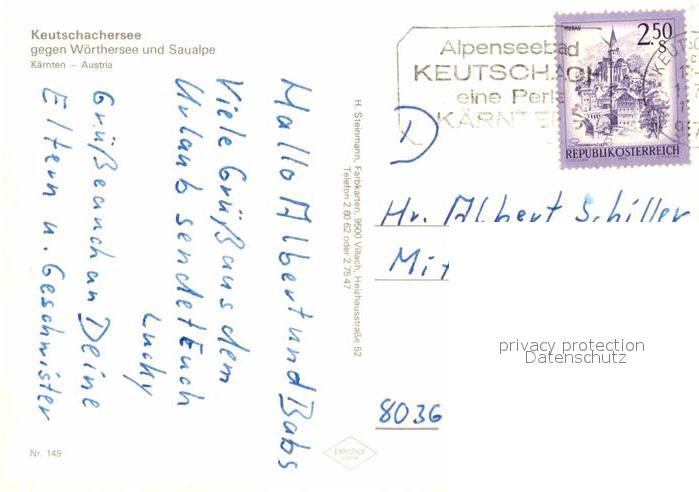 Keutschachersee
gegen Wörthersee und Saualpe
Kärnten – Austria
Hallo Albert und Babs
Viele Grüß aus dem
Urlaub sendet Euch
Lucky
Grüße auch an Deine
Eltern u. Geschwister
Nr. 149
H. Steinmann, Farbkarten, 9500 Villach, Heizhausstraße 52
Telefon 2 60 62 oder 2 75 47
Alpenseebad
KEUTSCHACH
eine Perle
KÄRNTEN
2.50
S
REPUBLIK ÖSTERREICH
D
Hr. Albert Schiller
Mit
privacy protection
Datenschutz
8036